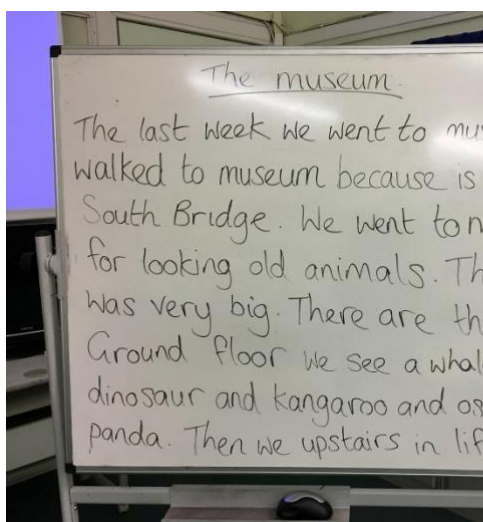 The museum.
The last week we went to
walked to museum because is
South Bridge. We went to
for looking old animals.
was very big. There are
Ground floor we see a
dinosaur and kangaroo and
panda. Then we upstairs in